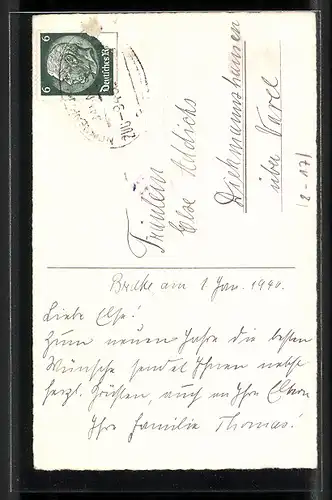 6 Deutsches Reich 6
Fräulein
Else Addicks
Diekmannshausen
über Varel
(2-17)
Brake am 1 Jan. 1940.
Liebe Else!
Zum neuen Jahre die besten
Wünsche sendet Ihnen nebst
herzl. Grüßen, auch an Ihre Eltern
Ihre Familie Thomas!